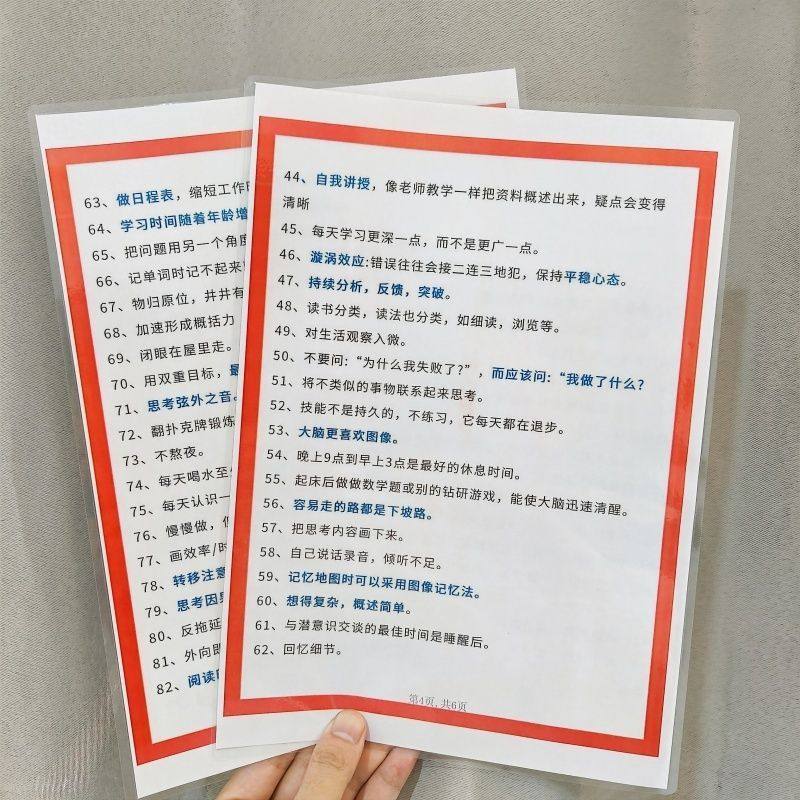 63、做日程表，缩短工作
64、学习时间随着年龄增
65、把问题用另一个角度
66、记单词时记不起来
67、物归原位，井井有
68、加速形成概括力
69、闭眼在屋里走。
70、用双重目标，最
71、思考弦外之音。
72、翻扑克牌锻炼
73、不熬夜。
74、每天喝水至
75、每天认识一
76、慢慢做，
77、画效率/时
78、转移注意
79、思考因
80、反拖延
81、外向即
82、阅读
44、自我讲授，像老师教学一样把资料概述出来，疑点会变得
清晰
45、每天学习更深一点，而不是更广一点。
46、漩涡效应:错误往往会接二连三地犯，保持平稳心态。
47、持续分析，反馈，突破。
48、读书分类，读法也分类，如细读，浏览等。
49、对生活观察入微。
50、不要问:“为什么我失败了?”，而应该问:“我做了什么?
51、将不类似的事物联系起来思考。
52、技能不是持久的，不练习，它每天都在退步。
53、大脑更喜欢图像。
54、晚上9点到早上3点是最好的休息时间。
55、起床后做做数学题或别的钻研游戏，能使大脑迅速清醒。
56、容易走的路都是下坡路。
57、把思考内容画下来。
58、自己说话录音，倾听不足。
59、记忆地图时可以采用图像记忆法。
60、想得复杂，概述简单。
61、与潜意识交谈的最佳时间是睡醒后。
62、回忆细节。
第4页,共6页